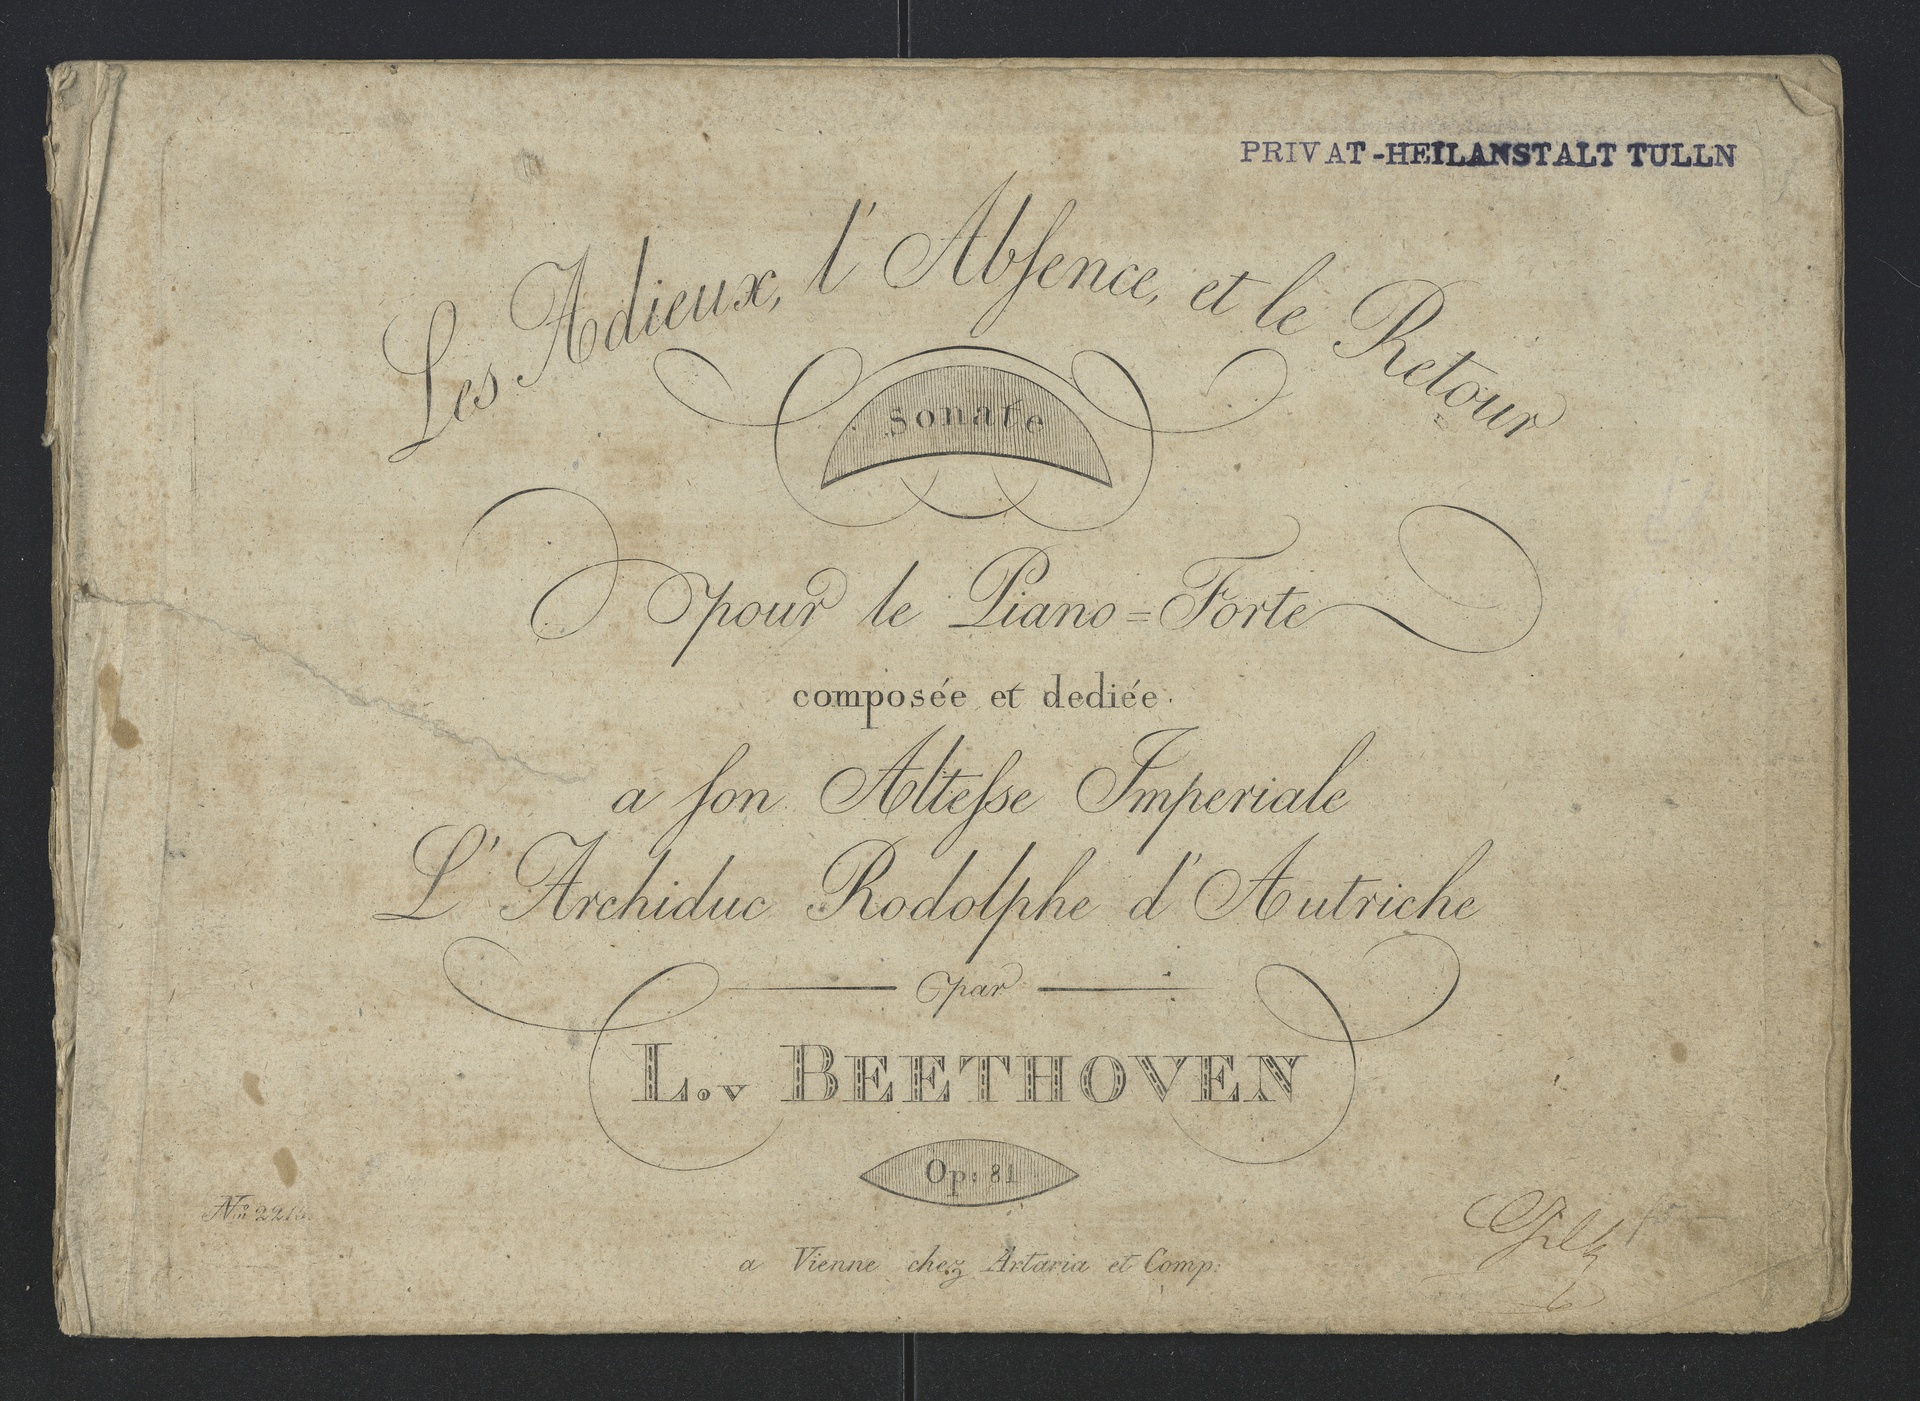 PRIVAT-HEILANSTALT TULLN
Les Adieux, l'Abſence, et le Retour
Sonate
pour le Piano=Forte
composée et dediée.
a ſon Alteſse Imperiale
L'Archiduc Rodolphe d'Autriche
par
L. v BEETHOVEN
Op: 81
a Vienne chez Artaria et Comp: